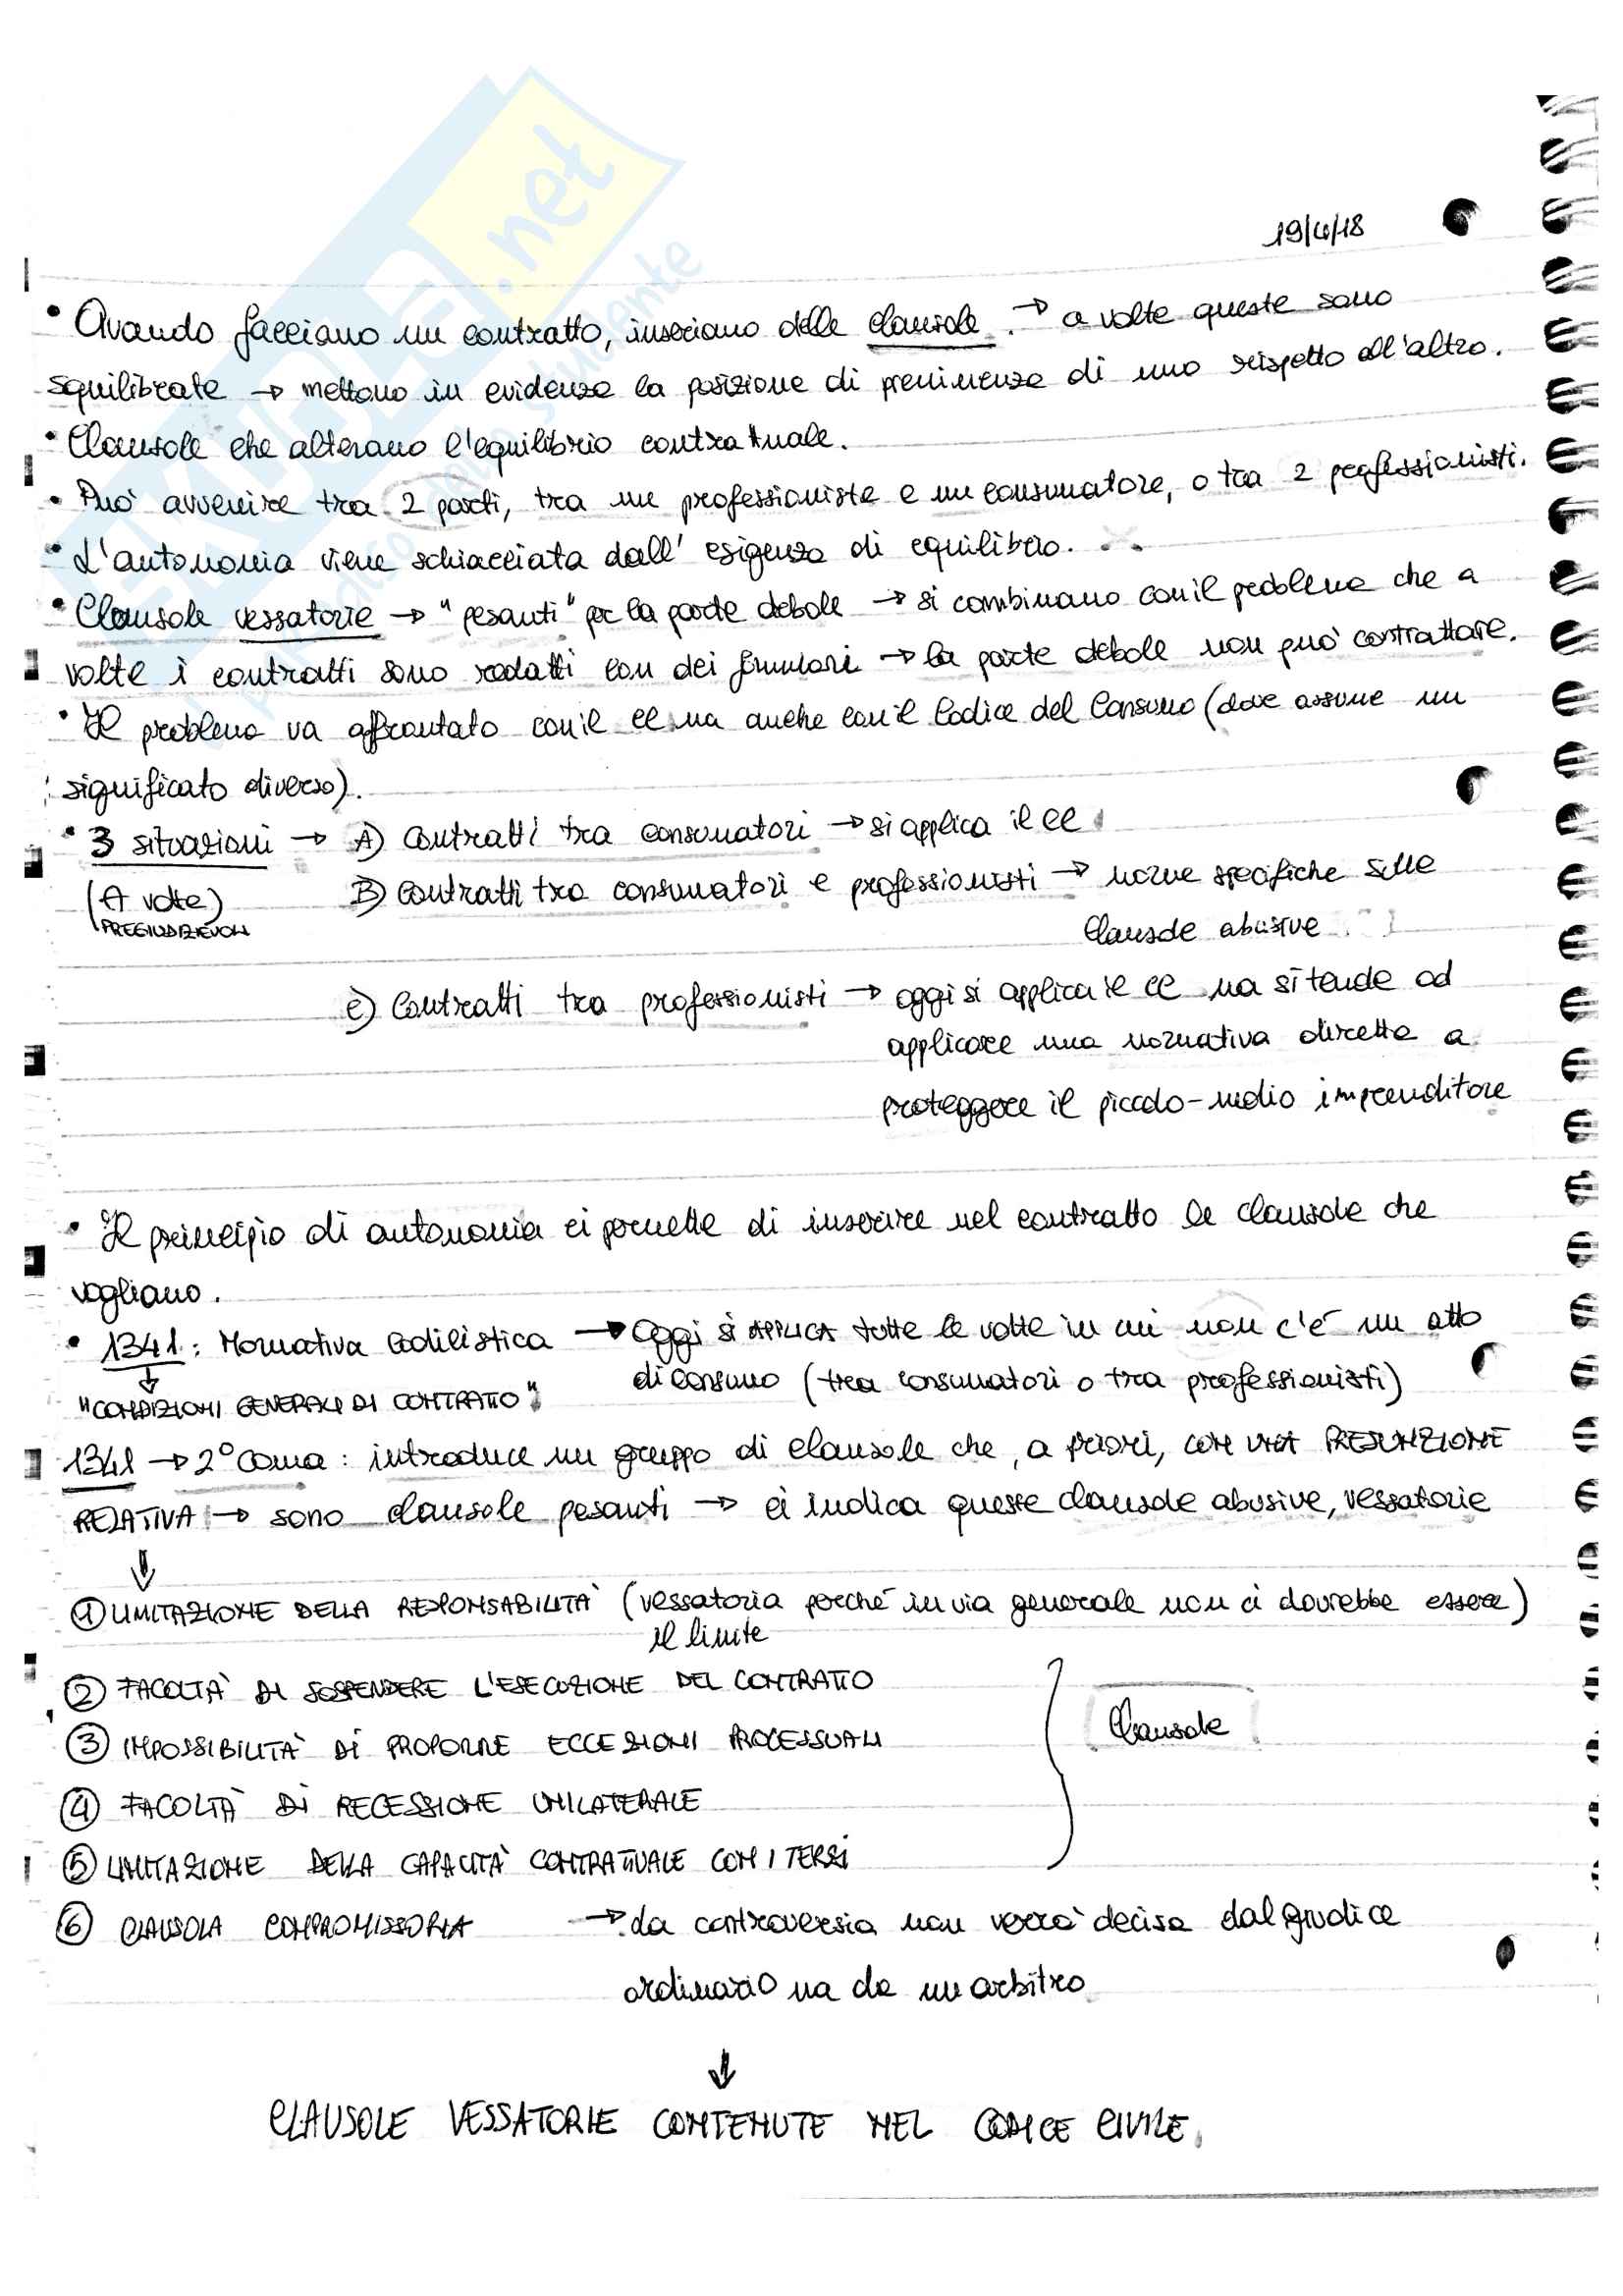 19/4/18
• Quando facciamo un contratto, inseriamo delle clausole. → a volte queste sono
squilibrate → mettono in evidenza la posizione di preminenza di uno rispetto all'altro.
• Clausole che alterano l'equilibrio contrattuale.
• Può avvenire tra 2 parti, tra un professionista e un consumatore, o tra 2 professionisti.
• L'autonomia viene schiacciata dall'esigenza di equilibrio.
• Clausole vessatorie → "pesanti" per la parte debole → si combinano con il problema che a
volte i contratti sono redatti con dei formulari → la parte debole non può contrattare.
• Il problema va affrontato con il cc ma anche con il Codice del Consumo (dove assume un
significato diverso).
• 3 situazioni → A) Contratti tra consumatori → si applica il cc
(A volte) B) Contratti tra consumatori e professionisti → norme specifiche sulle
PREGIUDIZIEVOLI clausole abusive
C) Contratti tra professionisti → oggi si applica il cc ma si tende ad
applicare una normativa diretta a
proteggere il piccolo-medio imprenditore
• Il principio di autonomia ci permette di inserire nel contratto le clausole che
vogliamo.
• 1341: Normativa codicistica → Oggi si APPLICA tutte le volte in cui non c'è un atto
↓ di consumo (tra consumatori o tra professionisti)
"CONDIZIONI GENERALI DI CONTRATTO"
1341 → 2° comma: introduce un gruppo di clausole che, a priori, CON UNA PRESUNZIONE
RELATIVA → sono clausole pesanti → ci indica queste clausole abusive, vessatorie
↓
① LIMITAZIONE DELLA RESPONSABILITÀ (vessatoria perché in via generale non ci dovrebbe essere)
il limite
② FACOLTÀ DI SOSPENDERE L'ESECUZIONE DEL CONTRATTO
③ IMPOSSIBILITÀ DI PROPORRE ECCEZIONI PROCESSUALI
Clausole
④ FACOLTÀ DI RECESSIONE UNILATERALE
⑤ LIMITAZIONE DELLA CAPACITÀ CONTRATTUALE CON I TERZI
⑥ CLAUSOLA COMPROMISSORIA → la controversia non verrà decisa dal giudice
ordinario ma da un arbitro
↓
CLAUSOLE VESSATORIE CONTENUTE NEL CODICE CIVILE.